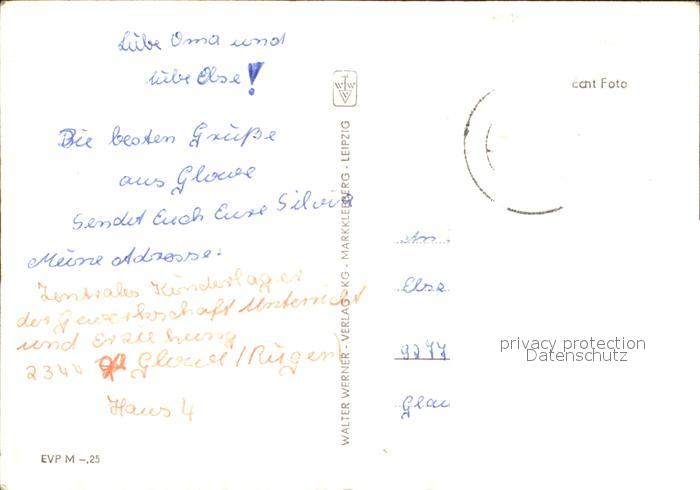 Liebe Oma und
liebe Else!
Die besten Grüße
aus Glowe
Sendet Euch Eure Silvia
Meine Adresse:
Zentrales Kinderlager
der Gewerkschaft Unterricht
und Erziehung
2344 Glowe/Rügen
Haus 4
EVP M -,25
WALTER WERNER - VERLAG - KG - MARKKLEEBERG - LEIPZIG
echt Foto
An
Else
9277
Glau
privacy protection
Datenschutz